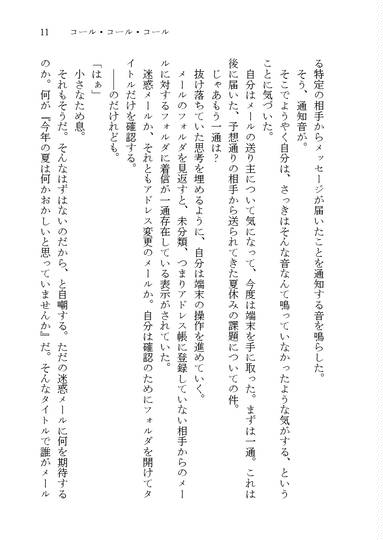 11　コール・コール・コール
る特定の相手からメッセージが届いたことを通知する音を鳴らした。
そう、通知音が。
そこでようやく自分は、さっきはそんな音なんて鳴っていなかったような気がする、という
ことに気づいた。
自分はメールの送り主について気になって、今度は端末を手に取った。まずは一通。これは
後に届いた、予想通りの相手から送られてきた夏休みの課題についての件。
じゃあもう一通は？
抜け落ちていた思考を埋めるように、自分は端末の操作を進めていく。
メールのフォルダを見返すと、未分類、つまりアドレス帳に登録していない相手からのメー
ルに対するフォルダに着信が一通存在している表示がされていた。
迷惑メールか、それともアドレス変更のメールか。自分は確認のためにフォルダを開けてタ
イトルだけを確認する。
――のだけれども。
「はぁ」
小さなため息。
それもそうだ。そんなはずはないのだから、と自嘲する。ただの迷惑メールに何を期待する
のか。何が『今年の夏は何かおかしいと思っていませんか』だ。そんなタイトルで誰がメール